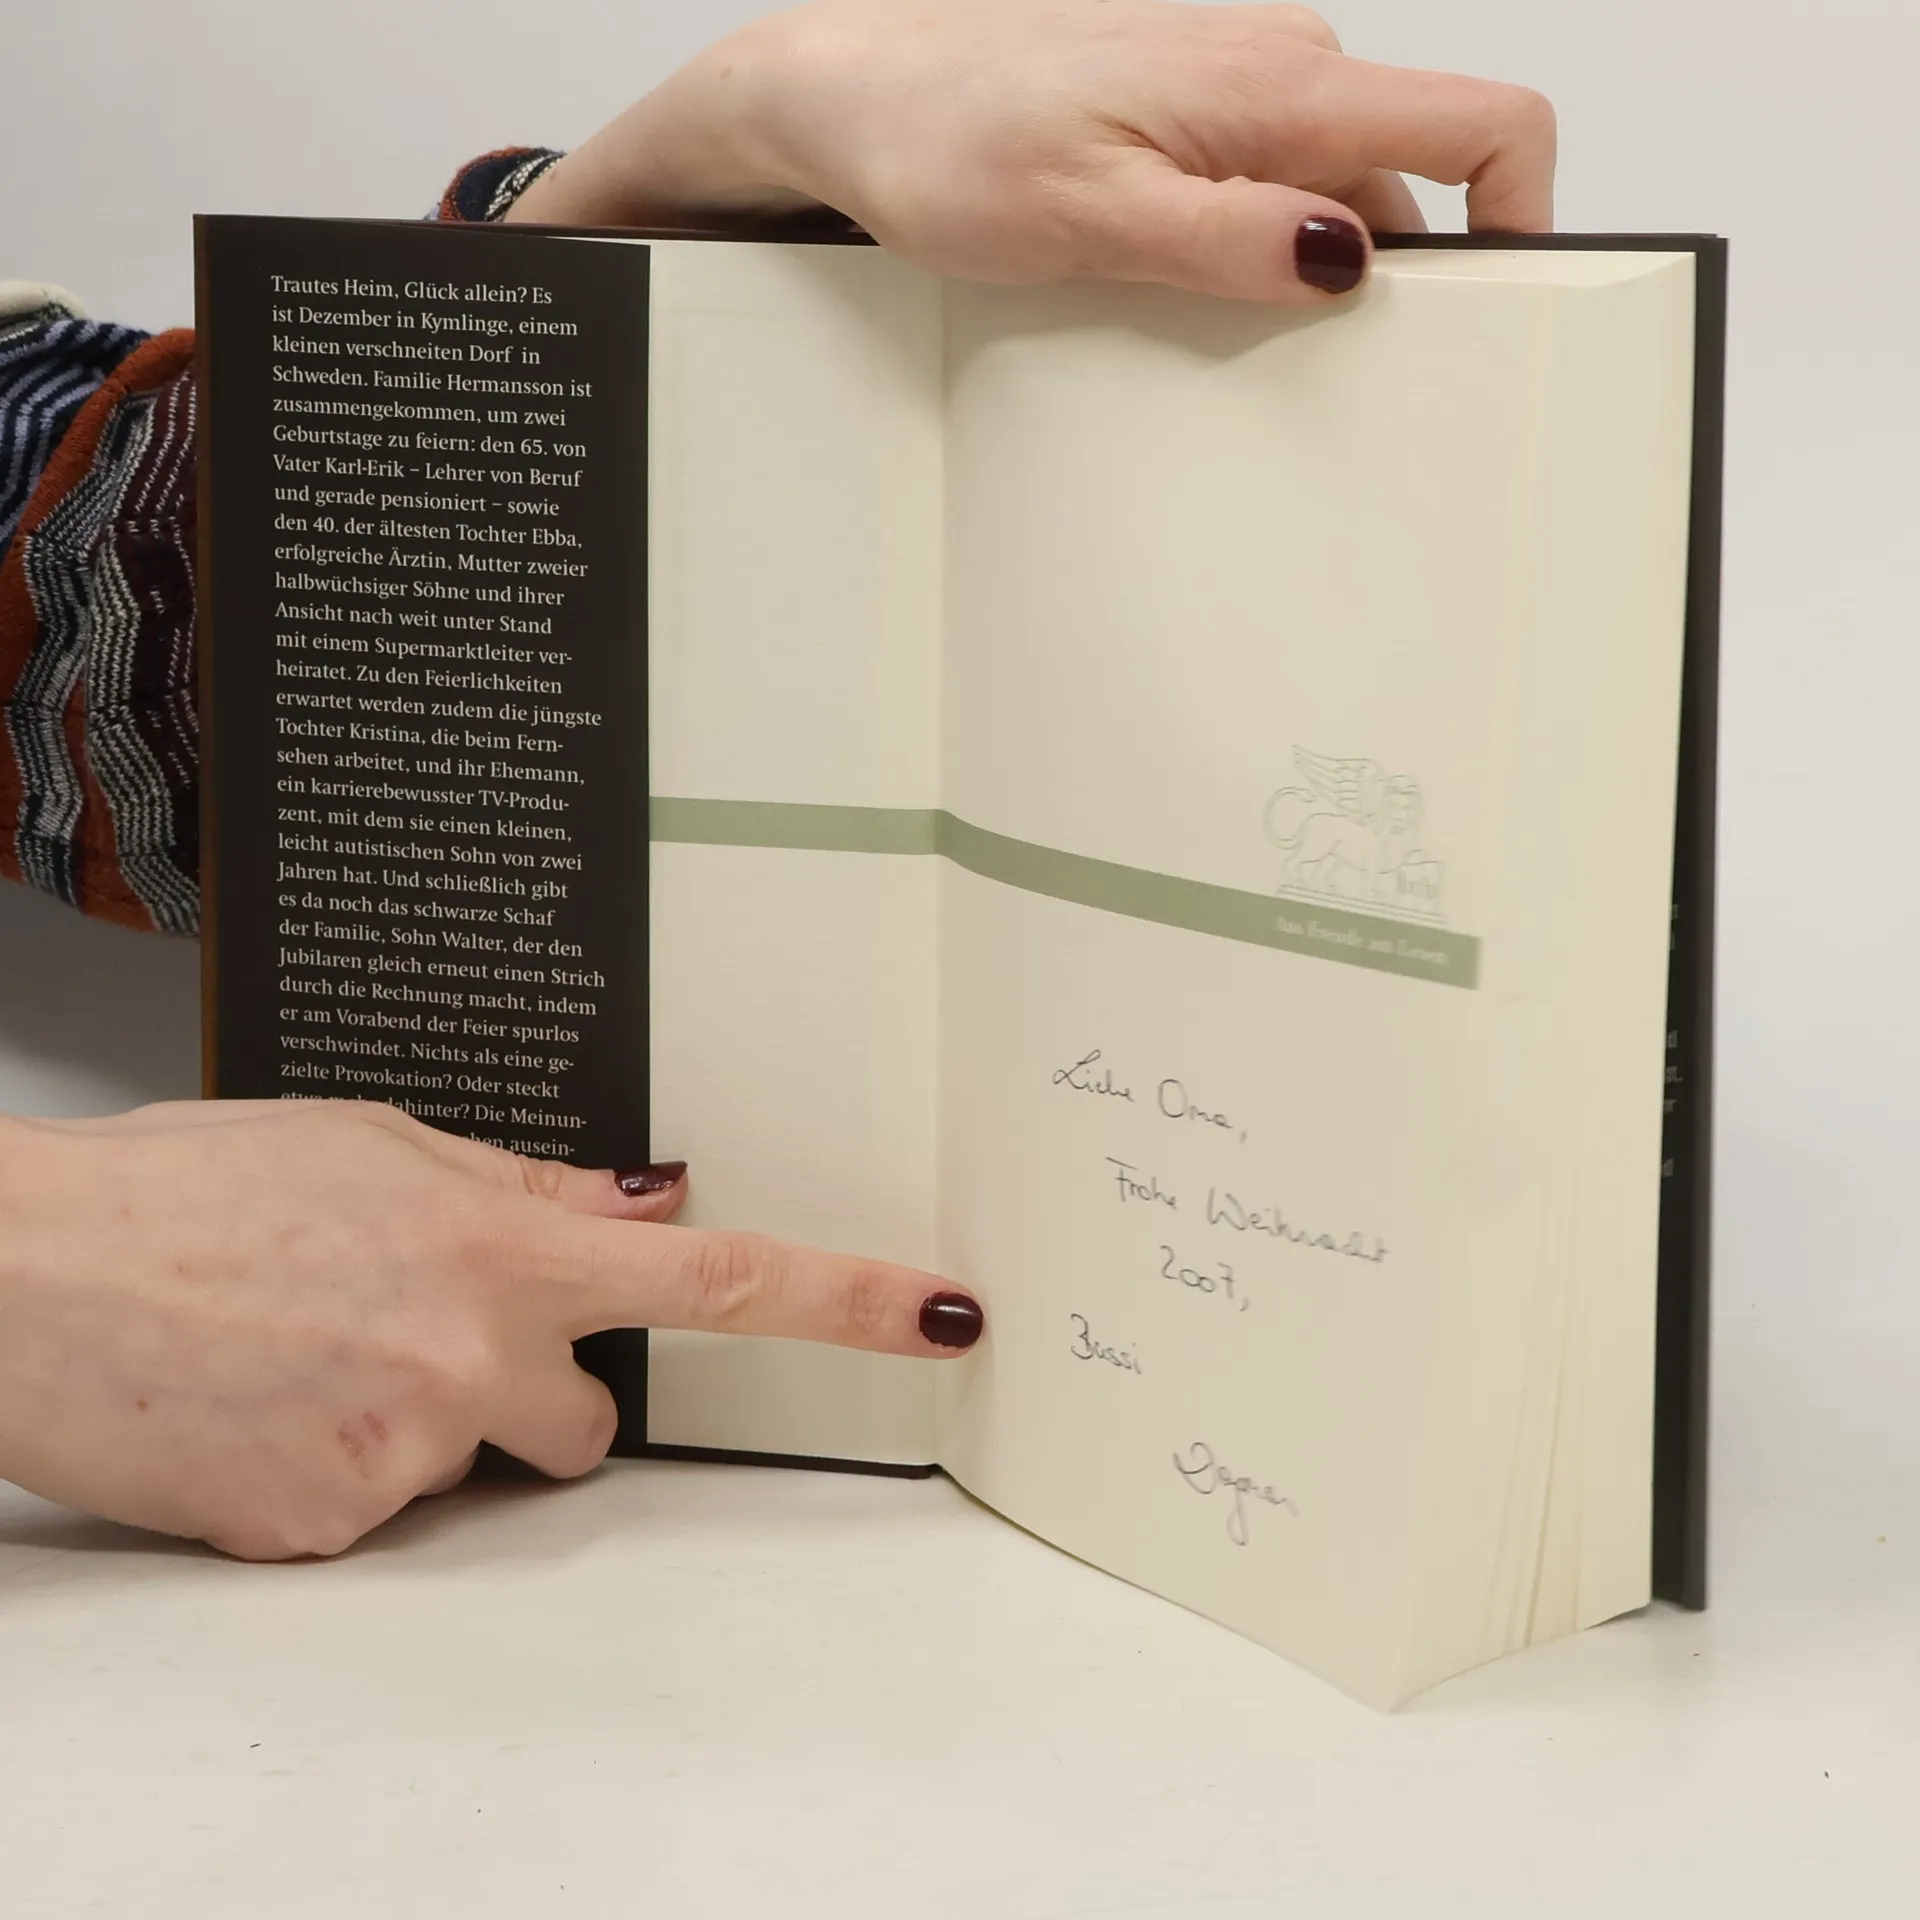 Trautes Heim, Glück allein? Es
ist Dezember in Kymlinge, einem
kleinen verschneiten Dorf in
Schweden. Familie Hermansson ist
zusammengekommen, um zwei
Geburtstage zu feiern: den 65. von
Vater Karl-Erik – Lehrer von Beruf
und gerade pensioniert – sowie
den 40. der ältesten Tochter Ebba,
erfolgreiche Ärztin, Mutter zweier
halbwüchsiger Söhne und ihrer
Ansicht nach weit unter Stand
mit einem Supermarktleiter ver-
heiratet. Zu den Feierlichkeiten
erwartet werden zudem die jüngste
Tochter Kristina, die beim Fern-
sehen arbeitet, und ihr Ehemann,
ein karrierebewusster TV-Produ-
zent, mit dem sie einen kleinen,
leicht autistischen Sohn von zwei
Jahren hat. Und schließlich gibt
es da noch das schwarze Schaf
der Familie, Sohn Walter, der den
Jubilaren gleich erneut einen Strich
durch die Rechnung macht, indem
er am Vorabend der Feier spurlos
verschwindet. Nichts als eine ge-
zielte Provokation? Oder steckt
etwas mehr dahinter? Die Meinun-
ausein-
btb
Aus Freude am Lesen
Liebe Oma,
Frohe Weihnacht
2007,
Bussi